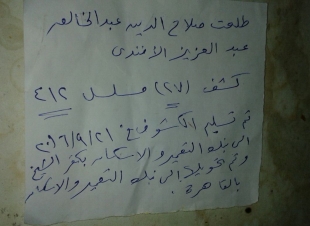 طلعت صلاح الدين عبد الخالق
عبد العزيز الافندى
كشف (٢٧) مسلسل ٤١٢
تم تسليم الكشوف فى ٢٠١٦/٩/٢١
الى بنك التعمير والاسكان بكفر الشيخ
وتم تحويلها الى بنك التعمير والاسكان
بالقاهرة .